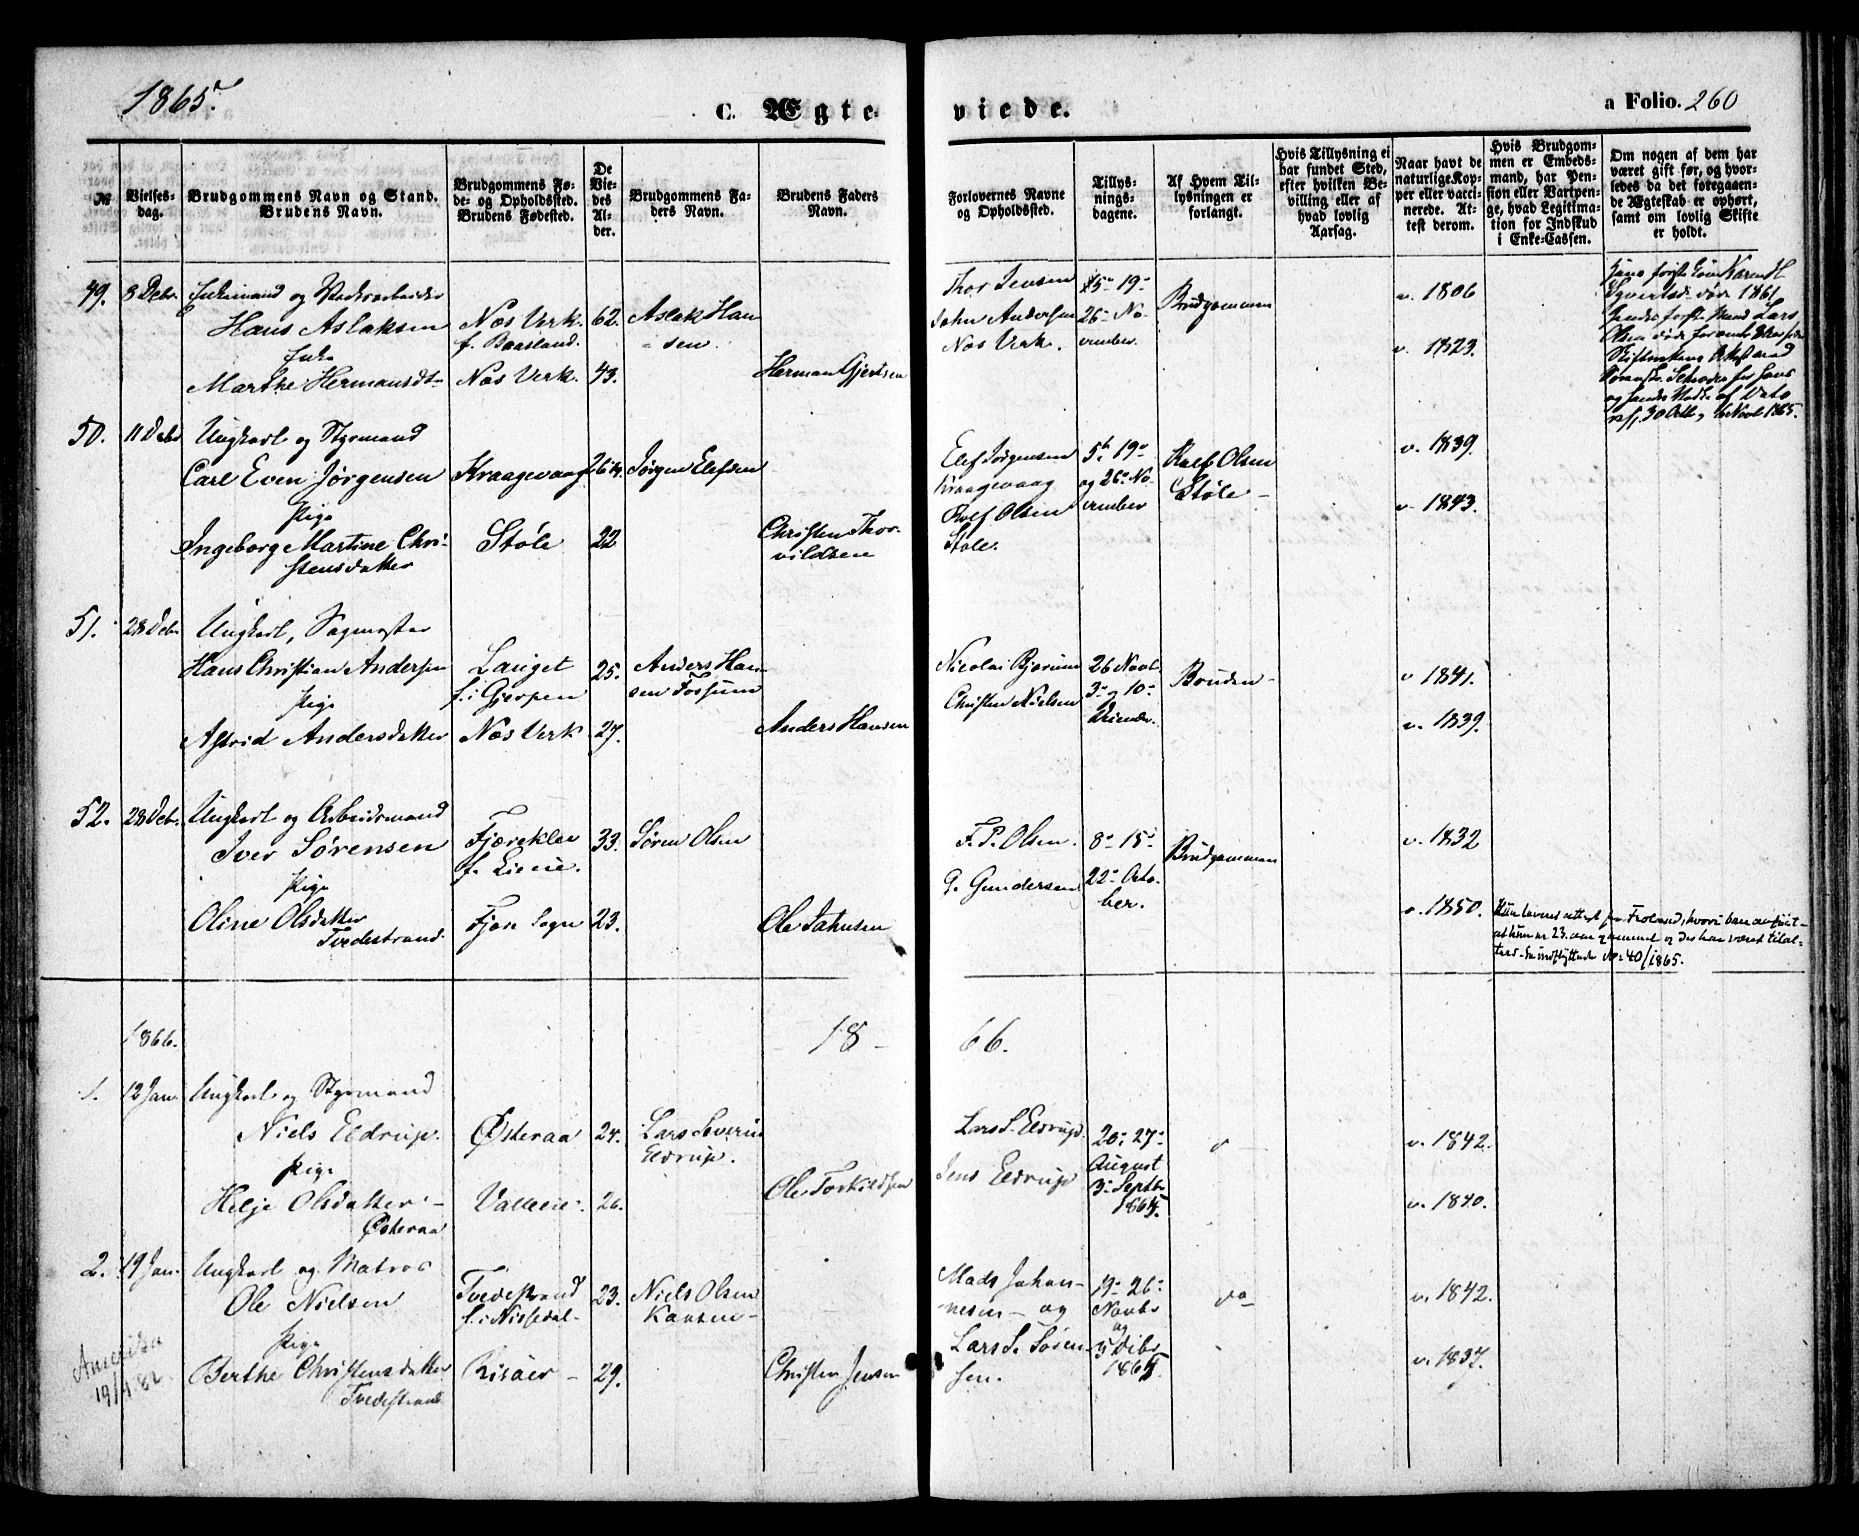 1865.
C. Ægte-
viede.
a Folio. 260
№
Vielses-
dag.
Brudgommens Navn og Stand.
Brudens Navn.
Brudgommens Fø-
de- og Opholdssted.
Brudens Fødested.
De
Vie-
des
Al-
der.
Brudgommens Fa-
ders Navn.
Brudens Faders
Navn.
Forlovernes Navne
og Opholdssted.
Tillys-
nings-
dagene.
Af Hvem Til-
lysningen er
forlangt.
Hvis Tillysning ei
har fundet Sted,
efter hvilken Be-
villing eller af
hvad lovlig
Aarsag.
Naar havt de
naturlige Kop-
per eller vacci-
nerede. At-
test derom.
Hvis Brudgom-
men er Embeds-
mand, har Pen-
sion eller Vartpen-
ge, hvad Legitima-
tion for Indskud
i Enke-Cassen.
Om nogen af dem har
været gift før, og hvor-
ledes da det foregaaen-
de Ægteskab er ophørt,
samt om lovlig Skifte
er holdt.
49. 8 Debr. Enkemand og
Hans Aslaksen
Enke
Marthe Hermansdt-
Næs Verk.
f. Baasland.
Næs Verk.
62.
43.
Aslak Han-
sen.
Herman Gjertsen
Thor Jensen
John Andersen
Næs Verk.
15- 19-
26- No-
vember.
Brudgommen
v. 1806
v. 1823.
hans første Kone Karen H.
Syvertsd. døde 1861
hendes første Mand Lars
Olsen døde
og hendes af Dato
30 Octb. 1865.
50. 11 Debr Ungkarl og Styrmand
Carl Even Jørgensen
Pige
Ingeborg Martine Chri-
stensdatter
Kraagevaag
Støle
26 1/4
22
Jørgen Elefsen
Christen Thor-
vildsen
Elef Jørgensen
Kraagevaag
Rolf Olsen
Støle.
5te 19-
og 26- No-
vember
Rolf Olsen
Støle -
v. 1839.
v. 1843.
51. 28 Debr Ungkarl, Sagmester
Hans Christian Andersen
Pige
Astrid Andersdatter
Lauget
f. i Gjerpen
Næs Verk
25.
27.
Anders Han-
sen Fossum
Anders Hansen
Nicolai Bjorum
Christen Nielsen
26 Novbr.
3- og 10-
Decmbr.
Bruden-
v 1841.
v. 1839.
52. 28 Debr. Ungkarl og Arbeidsmand
Iver Sørensen
Pige
Oline Olsdatter
Tvedestrand.
Fjærekleiv
f.
Fjære Sogn
33.
23.
Søren Olsen
Ole Jahnsen
F. P. Olsen.
G. Gundersen
8- 15-
22- Octo-
ber.
Brudgommen
v. 1832
v. 1850.
Hun leveret attest fra Froland, hvori
at hun er 23. aar gammel og der har været
indflyttede No 40/1865.
1866.
18-
66.
1. 12 Jan. Ungkarl og Styrmand
Niels Eldrup.
Pige
Helje Olsdatter -
Østeraa
Østeraa
24.
26.
Lars Severin
Eldrup.
Ole Torkildsen
Lars S. Eldrup.
Jens Eldrup
20- 27-
August
3- Septbr
1865.
v. 1842.
v. 1840.
2. 19 Jan. Ungkarl og Matros
Ole Nielsen
Pige
Berthe Christensdatter
Tvedestrand
Tvedestrand
f. i Nissedal-
Risøer -
23.
29.
Niels Olsen
Christen Jensen
Mads Johan-
nesen - og
Lars S. Søren-
sen.
19- 26-
Novbr
og
3 Debr
1865
do-
v. 1842.
v. 1837.
Amerika
19/4 82